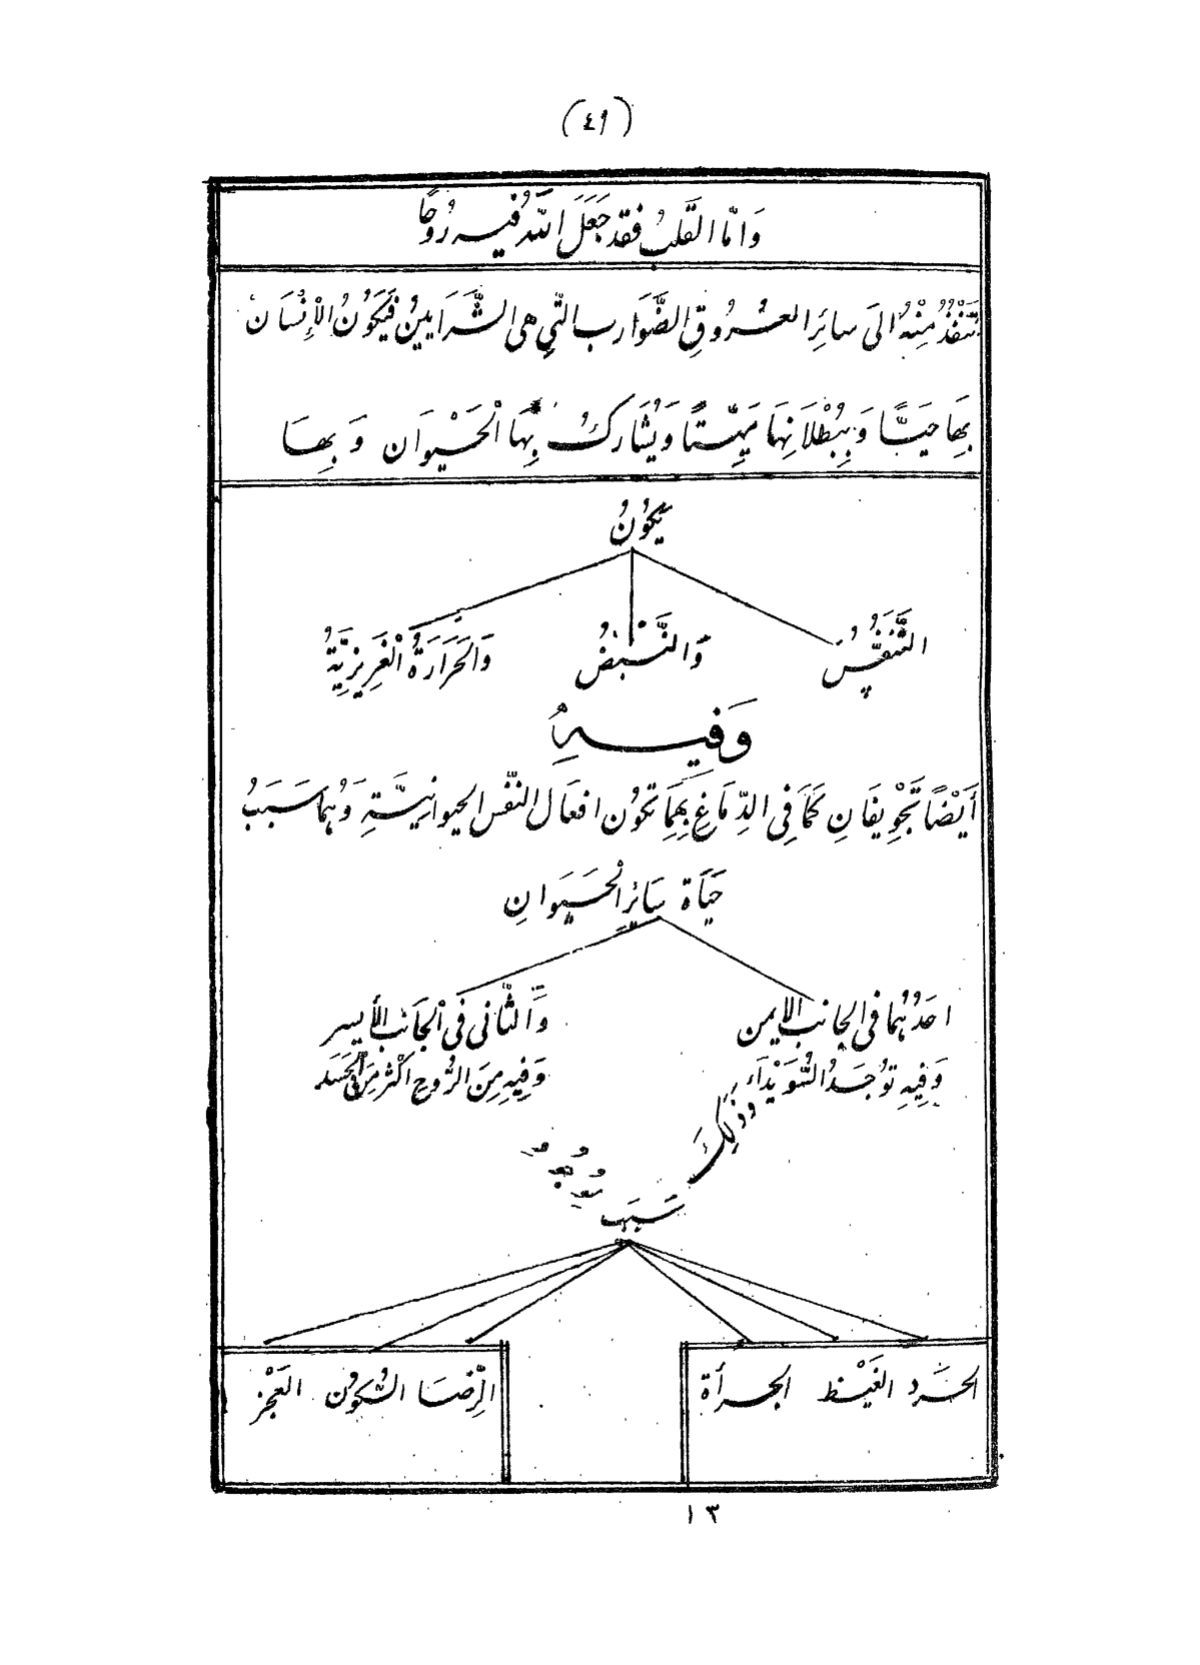 (٤٩)
وَامَّا القَلبُ فقد جَعَلَ اللهُ فيه رُوحًا
تَنْفُذُ مِنْهُ الىَ سائِر العُروقِ الضَّوَارب التّي هى الشَّرَايينُ فَيَكُونُ الْإِنْسَان
بِهَا حَيًّا وَبِبُطْلَانِهَا مَيِّتًا وَيُشَارِكُ بِهَا الْحَيْوَان وَبِهَا
يَكُونُ
التَّنَفُّسُ وَالنَّبْضُ وَالحَرَارَةُ الْغَرِيزِيَّةُ
وَفِيهِ
أَيْضًا تَجْوِيفَانِ كَمَا فِى الدِّمَاغِ بِهِمَا تَكُوُن افعَال النَّفْس الحيوانيَّةِ وَهُما سَبَبُ
حَيَاة سَائِرِ الْحَيَوانِ
احَدُهُمَا فى الجانب الايمن وَالثَّانى فى الجَانب الأيسر
وَفِيهِ تُوجَدُ السُّوَيْدَاء وَفِيهِ مِنَ الرُّوحِ اكْثَر مِنَ الْجَسَد
وذَلِكَ
سَبَب
الحَرَد الغَيْظ الجرأة الرِّضَا السُّكوُن العَجْز
١٣